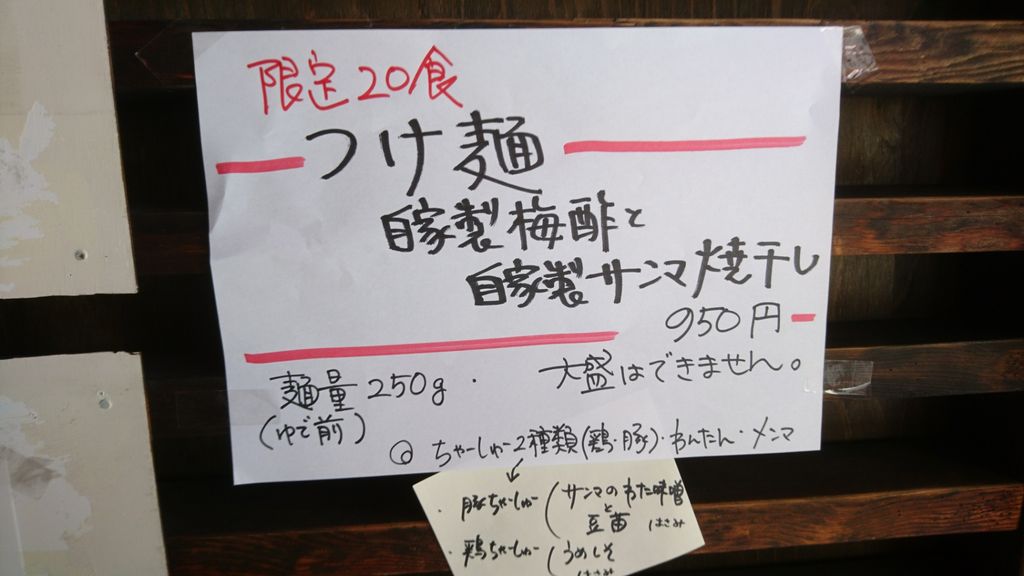 限定20食
つけ麺
自家製梅酢と
自家製サンマ焼干し
950円
麺量250g・
大盛はできません。
(ゆで前)
◎ ちゃーしゅー2種類(鶏・豚)・わんたん・メンマ
・豚ちゃーしゅー(サンマのわた味噌
と
豆苗 はさみ
・鶏ちゃーしゅー(うめしそ
はさみ